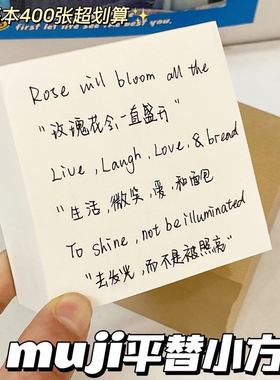 first let life see the best you.
本400张超划算
Rose will bloom all the
"玫瑰花会一直盛开"
Live, Laugh, Love, & bread
"生活,微笑,爱,和面包
To shine, not be illuminated
"去发光,而不是被照亮"
muji平替小方